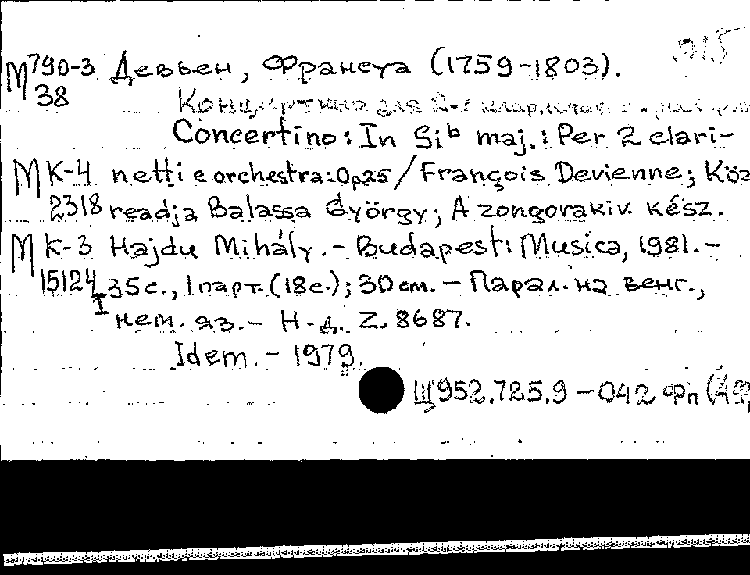 М790-3 Девьен, Франсуа (1759-1803).
38
Концертино для 2-х
Concertino: In Si♭ maj.: Per 2 clari-
М К-4 netti e orchestra: Op25 / François Devienne; Köz
2318 readja Balassa György; A zongorakiv. kész.
М К-3 Hajdu Mihály. - Budapest: Musica, 1981. -
15124 35 с., 1 парт. (18 с.); 30 см. - Парал. на венг.,
I нем. яз. - Н. д. Z. 8687.
Idem. - 1979.
Щ952.725.9-042 Фп